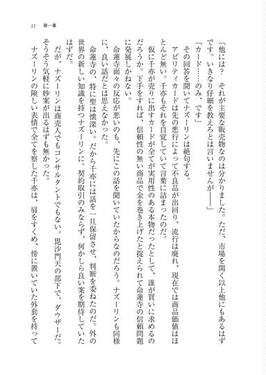 11　第一章
「他には？　それが主要な販売物なのは分かりました。ただ、市場を開く以上他にもあるはず
です。いきなり仔細を教えろとは言いませんが――」
「カード……のみ、です」
　その回答を聞いてナズーリンは絶句する。
　アビリティカードは先の悪行によって不良品が出回り、流行は廃れ、現在では商品価値はほ
とんど無い。千亦もそれを自覚していて言葉に詰まったのだ。
　仮に千亦が売りに出すカードが全てが実用性のある本物だったとして、誰が買いに求めるの
だろうか。下手をすれば、信頼性の無い商品で金を巻き上げたと捉えられて命蓮寺の信頼問題
に発展しかねない。
　命蓮寺面々の反応が悪いのも、先にこの話を聞いていたからなのだろう。ナズーリンも同様
に、良い話だとは思えなかった。
　命蓮寺の、特に聖は懐深い。だから千亦には話を一旦保留させ、判断を委ねたのだ。外の
世界の新しい知識を持つナズーリンに。契約取引のみならず、何かしら良い案を期待していた
はずだ。
　だが、ナズーリンは商売人でもコンサルタントでもない。毘沙門天の部下で、ダウザーだ。
そうそう気軽に妙案が出るはずも無かった。
　ナズーリンの険しい表情で全てを察した千亦は、肩をすくめ、傍に置いていた外套を持って